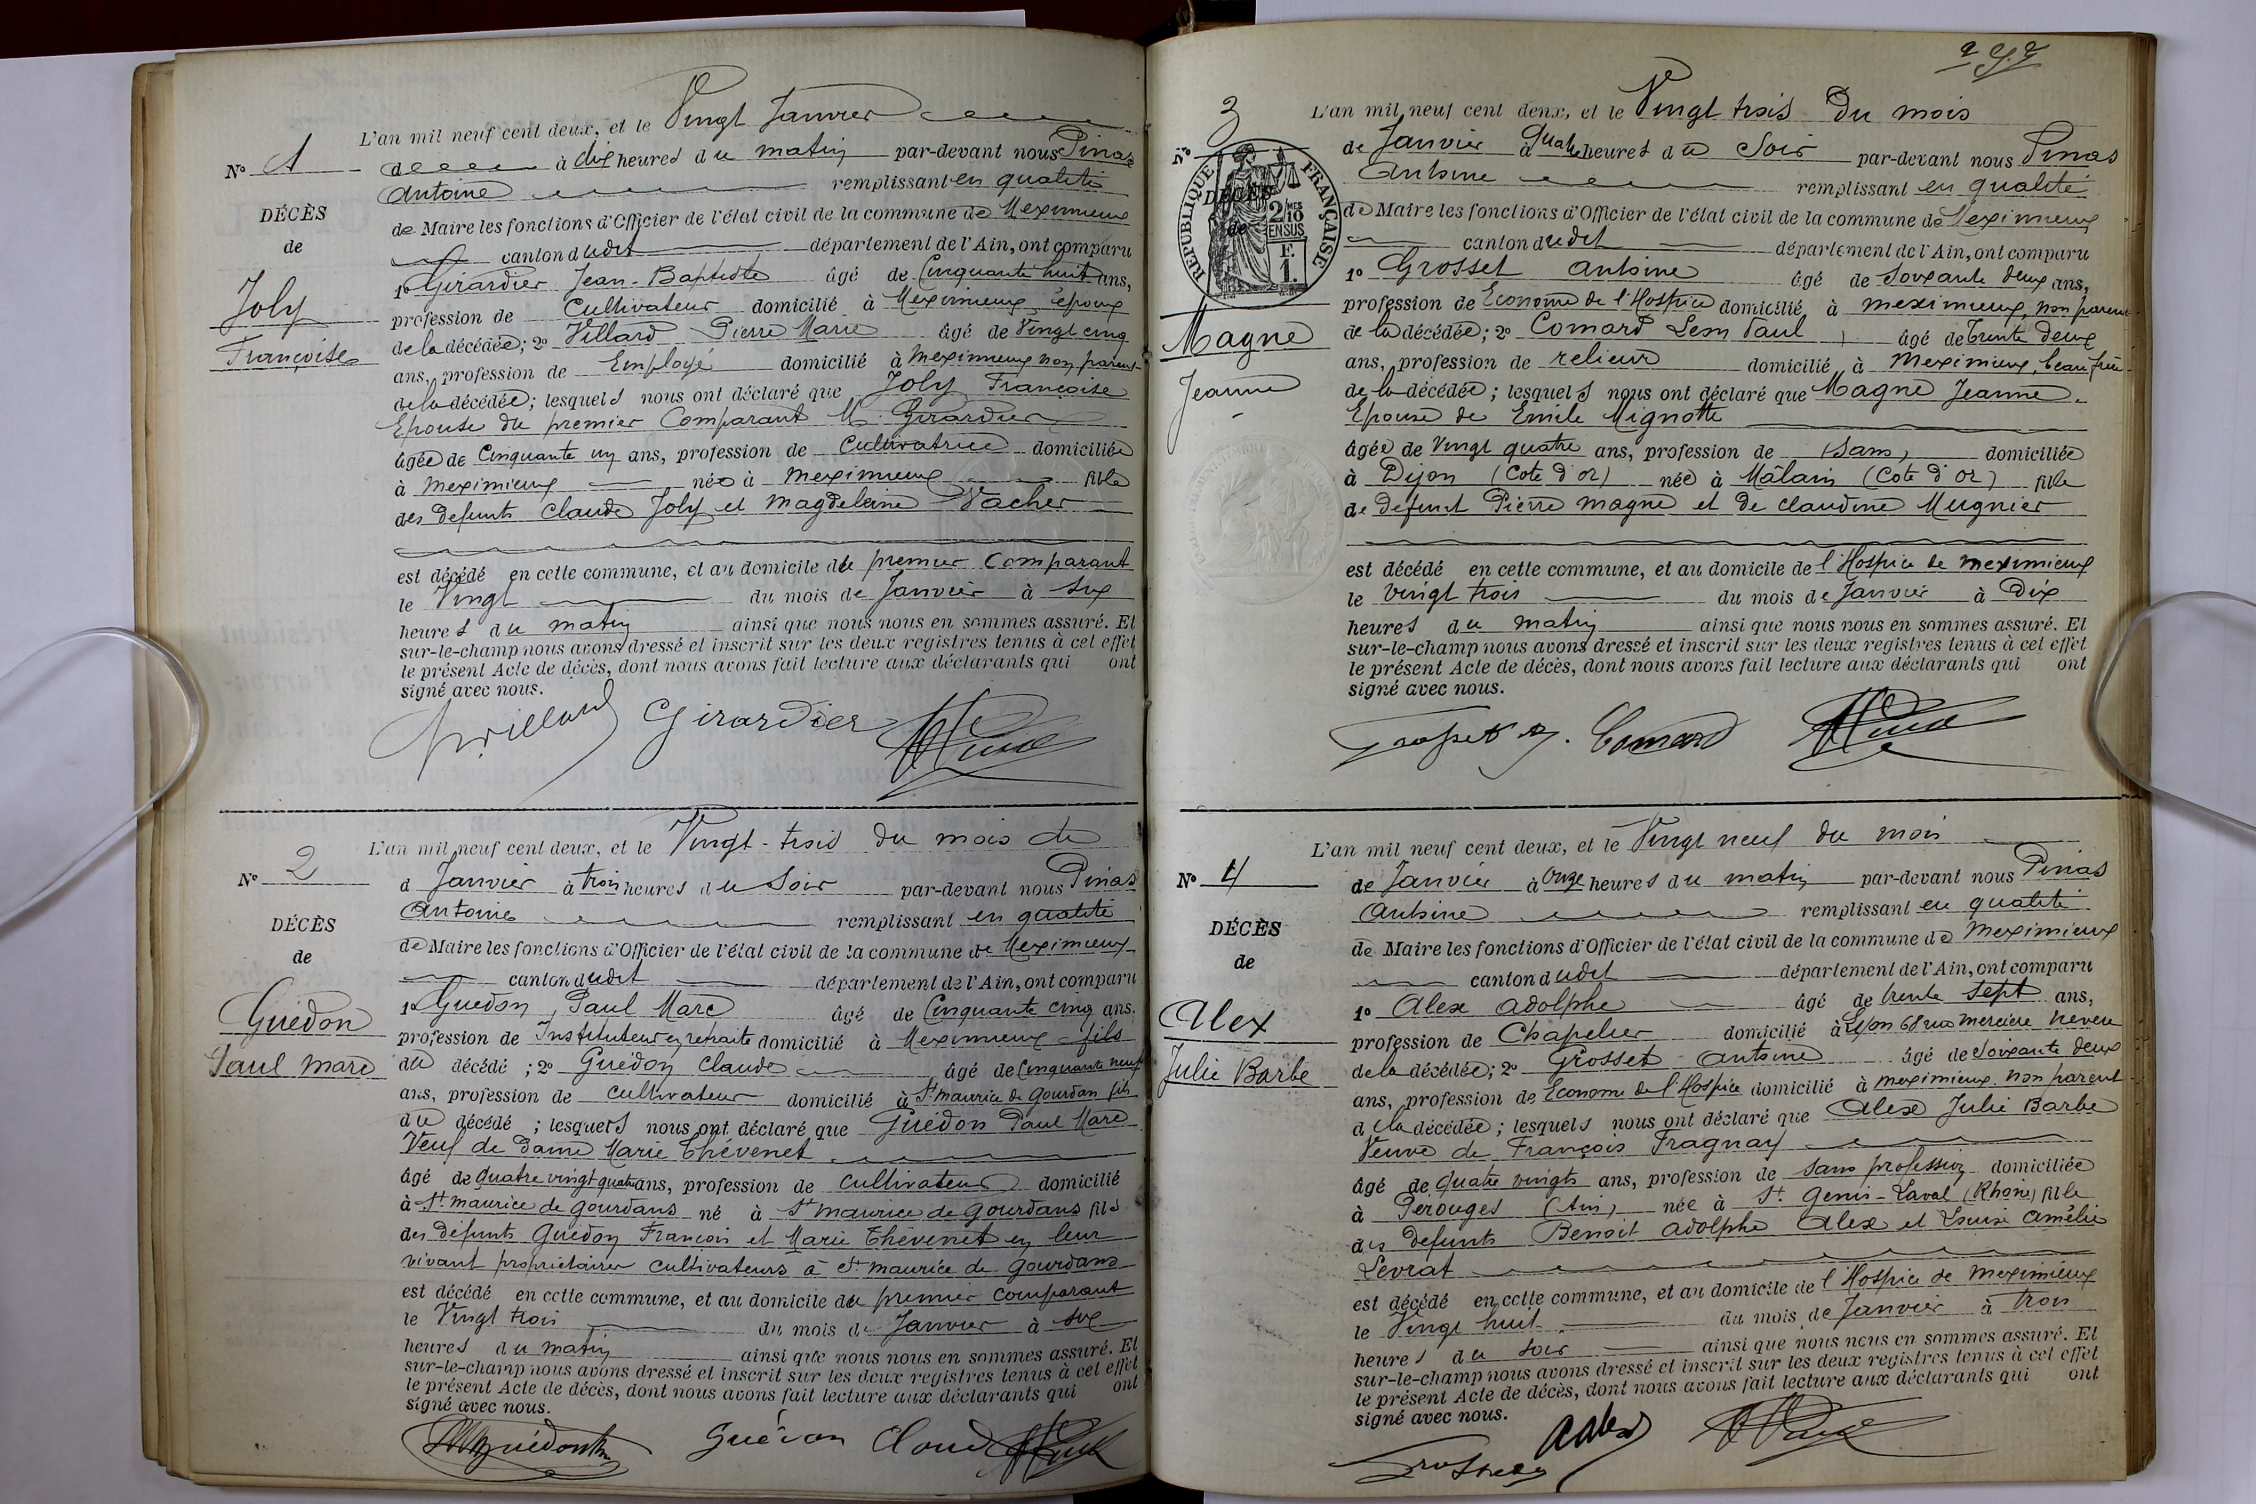 L'an mil neuf cent deux, et le Vingt Janvier
No 1
d à dix heures du matin par-devant nous Pinas
Antoine remplissant en qualité
de Maire les fonctions d'Officier de l'état civil de la commune de Meximieux
canton dudit département de l'Ain, ont comparu
DÉCÈS
de
Joly
Françoise
1o Girardier Jean-Baptiste âgé de Cinquante huit ans,
profession de Cultivateur domicilié à Meximieux, époux
de la décédée; 2o Villard Pierre Marie âgé de Vingt cinq
ans, profession de Employé domicilié à Meximieux non parent
de la décédée; lesquels nous ont déclaré que Joly Françoise
Epouse du premier Comparant M. Girardier
âgée de Cinquante un ans, profession de Cultivatrice domiciliée
à Meximieux née à Meximieux fille
des defunts Claude Joly et Magdeleine Vacher
est décédé en cette commune, et au domicile du premier Comparant
le Vingt du mois de Janvier à six
heures du matin ainsi que nous nous en sommes assuré. Et
sur-le-champ nous avons dressé et inscrit sur les deux registres tenus à cet effet
le présent Acte de décès, dont nous avons fait lecture aux déclarants qui ont
signé avec nous.
Villard Girardier Pinas
L'an mil neuf cent deux, et le Vingt-trois du mois de
No 2
d Janvier à trois heures du Soir par-devant nous Pinas
Antoine remplissant en qualité
de Maire les fonctions d'Officier de l'état civil de la commune de Meximieux
canton dudit département de l'Ain, ont comparu
DÉCÈS
de
Guédon
Paul Marc
1o Guedon, Paul Marc âgé de Cinquante cinq ans.
profession de Instituteur en retraite domicilié à Meximieux fils
du décédé ; 2o Guedon Claude âgé de Cinquante neuf
ans, profession de cultivateur domicilié à St Maurice de Gourdan fils
du décédé ; lesquels nous ont déclaré que Guédon Paul Marc
Veuf de Dame Marie Thévenet
âgé de quatre vingt quatre ans, profession de cultivateur domicilié
à St Maurice de Gourdans né à St Maurice de Gourdans fils
des defunts Guédon François et Marie Thévenet en leur
vivant propriétaires cultivateurs à St Maurice de Gourdans
est décédé en cette commune, et au domicile du premier comparant
le Vingt trois du mois de Janvier à six
heures du matin ainsi que nous nous en sommes assuré. Et
sur-le-champ nous avons dressé et inscrit sur les deux registres tenus à cet effet
le présent Acte de décès, dont nous avons fait lecture aux déclarants qui ont
signé avec nous.
Guédon Claude Pinas
L'an mil neuf cent deux, et le Vingt trois Du mois
No 3
de Janvier à Quatre heures du Soir par-devant nous Pinas
Antoine remplissant en qualité
de Maire les fonctions d'Officier de l'état civil de la commune de Meximieux
canton dudit département de l'Ain, ont comparu
DÉCÈS
de
RÉPUBLIQUE FRANÇAISE
2/MES
10
EN SUS
F.
1.
Magne
Jeanne
1o Grosset Antoine âgé de Soixante deux ans,
profession de Econome de l'Hospice domicilié à Meximieux, non parent
de la décédée; 2o Comard Leon Paul âgé de trente deux
ans, profession de relieur domicilié à Meximieux, beau frère
de la décédée ; lesquels nous ont déclaré que Magne Jeanne.
Epouse de Emile Mignotte
âgée de Vingt quatre ans, profession de Sans, domiciliée
à Dijon (Cote d'or) née à Mâlain (Cote d'or) fille
de défunt Pierre Magne et de Claudine Mugnier
est décédé en cette commune, et au domicile de l'Hospice de Meximieux
le vingt trois du mois de Janvier à Dix
heures du matin ainsi que nous nous en sommes assuré. Et
sur-le-champ nous avons dressé et inscrit sur les deux registres tenus à cet effet
le présent Acte de décès, dont nous avons fait lecture aux déclarants qui ont
signé avec nous.
Grosset A. Comard Pinas
L'an mil neuf cent deux, et le Vingt neuf du mois
No 4
de Janvier à Onze heures du matin par-devant nous Pinas
Antoine remplissant en qualité
de Maire les fonctions d'Officier de l'état civil de la commune de Meximieux
canton dudit département de l'Ain, ont comparu
DÉCÈS
de
Alex
Julie Barbe
1o Alex Adolphe âgé de trente sept ans,
profession de Chapelier domicilié à Lyon 68 rue Mercière neveu
de la décédée; 2o Grosset Antoine âgé de Soixante deux
ans, profession de Econome de l'Hospice domicilié à Meximieux non parent
de la décédée ; lesquels nous ont déclaré que Alex Julie Barbe
Veuve de François Fragnay
âgé de quatre vingts ans, profession de sans profession domiciliée
à Pérouges (Ain) née à St. Genis-Laval (Rhône) fille
des defunts Benoit Adolphe Alex et Louise Amélie
Levrat
est décédé en cette commune, et au domicile de l'Hospice de Meximieux
le Vingt huit du mois de Janvier à trois
heures du soir ainsi que nous nous en sommes assuré. Et
sur-le-champ nous avons dressé et inscrit sur les deux registres tenus à cet effet
le présent Acte de décès, dont nous avons fait lecture aux déclarants qui ont
signé avec nous.
Grosset A. Alex Pinas